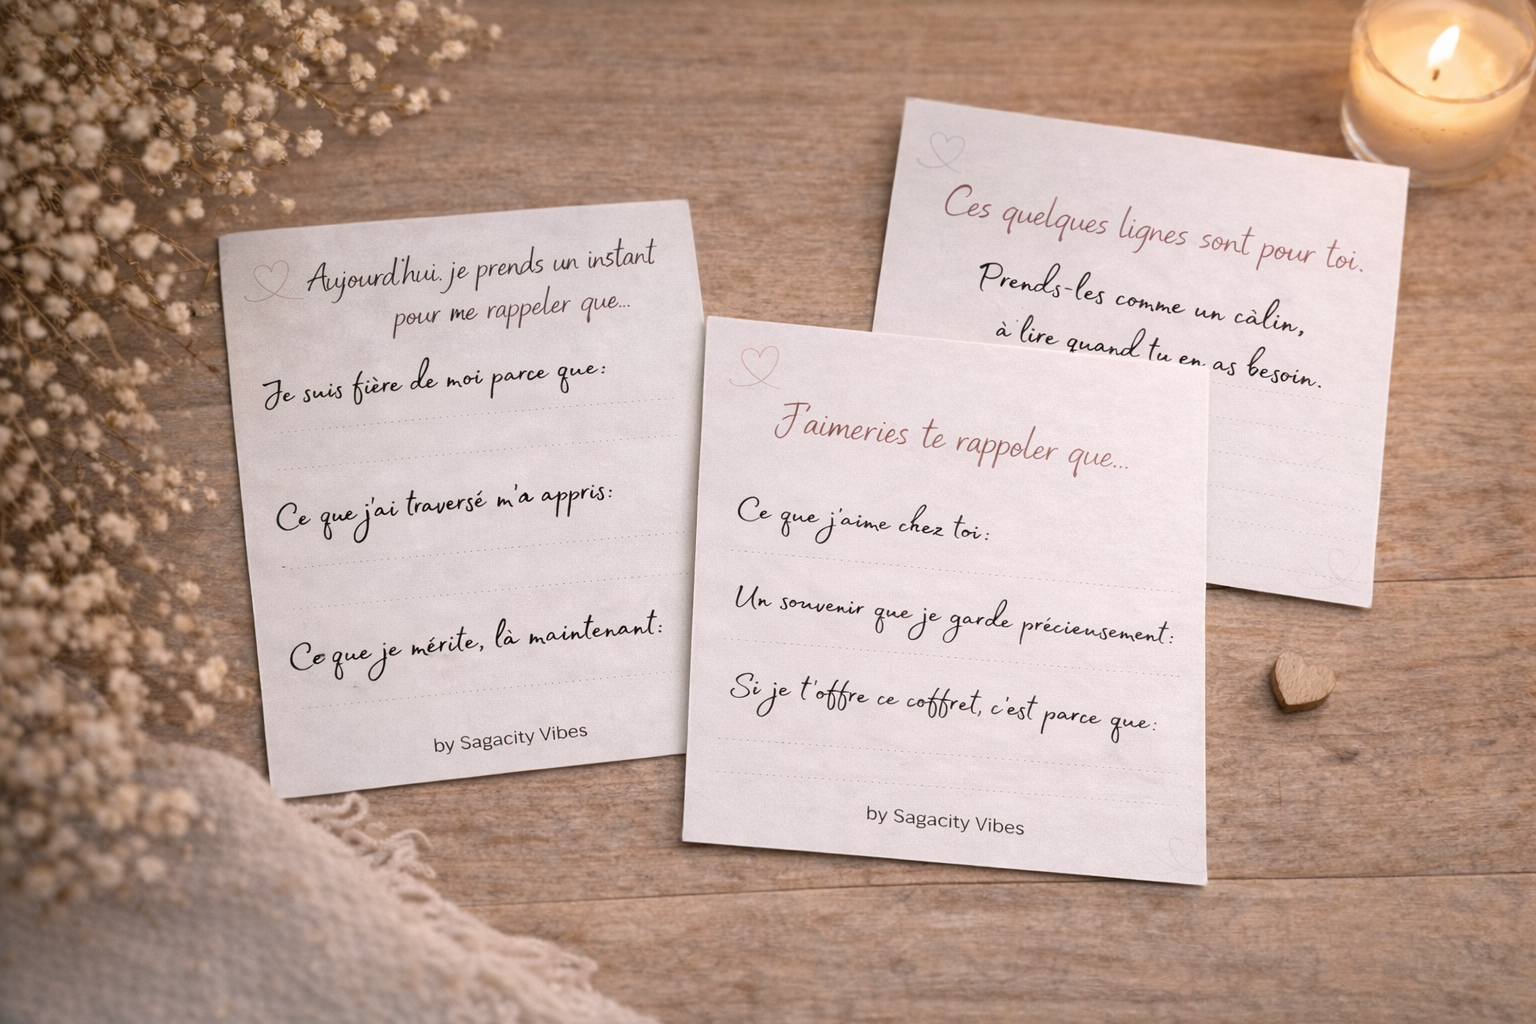 Aujourd'hui. je prends un instant
pour me rappeler que...
Je suis fière de moi parce que:
Ce que j'ai traversé m'a appris:
Ce que je mérite, là maintenant:
by Sagacity Vibes
Ces quelques lignes sont pour toi.
Prends-les comme un câlin,
à lire quand tu en as besoin.
J'aimeries te rappoler que...
Ce que j'aime chez toi:
Un souvenir que je garde précieusement:
Si je t'offre ce coffret, c'est parce que:
by Sagacity Vibes